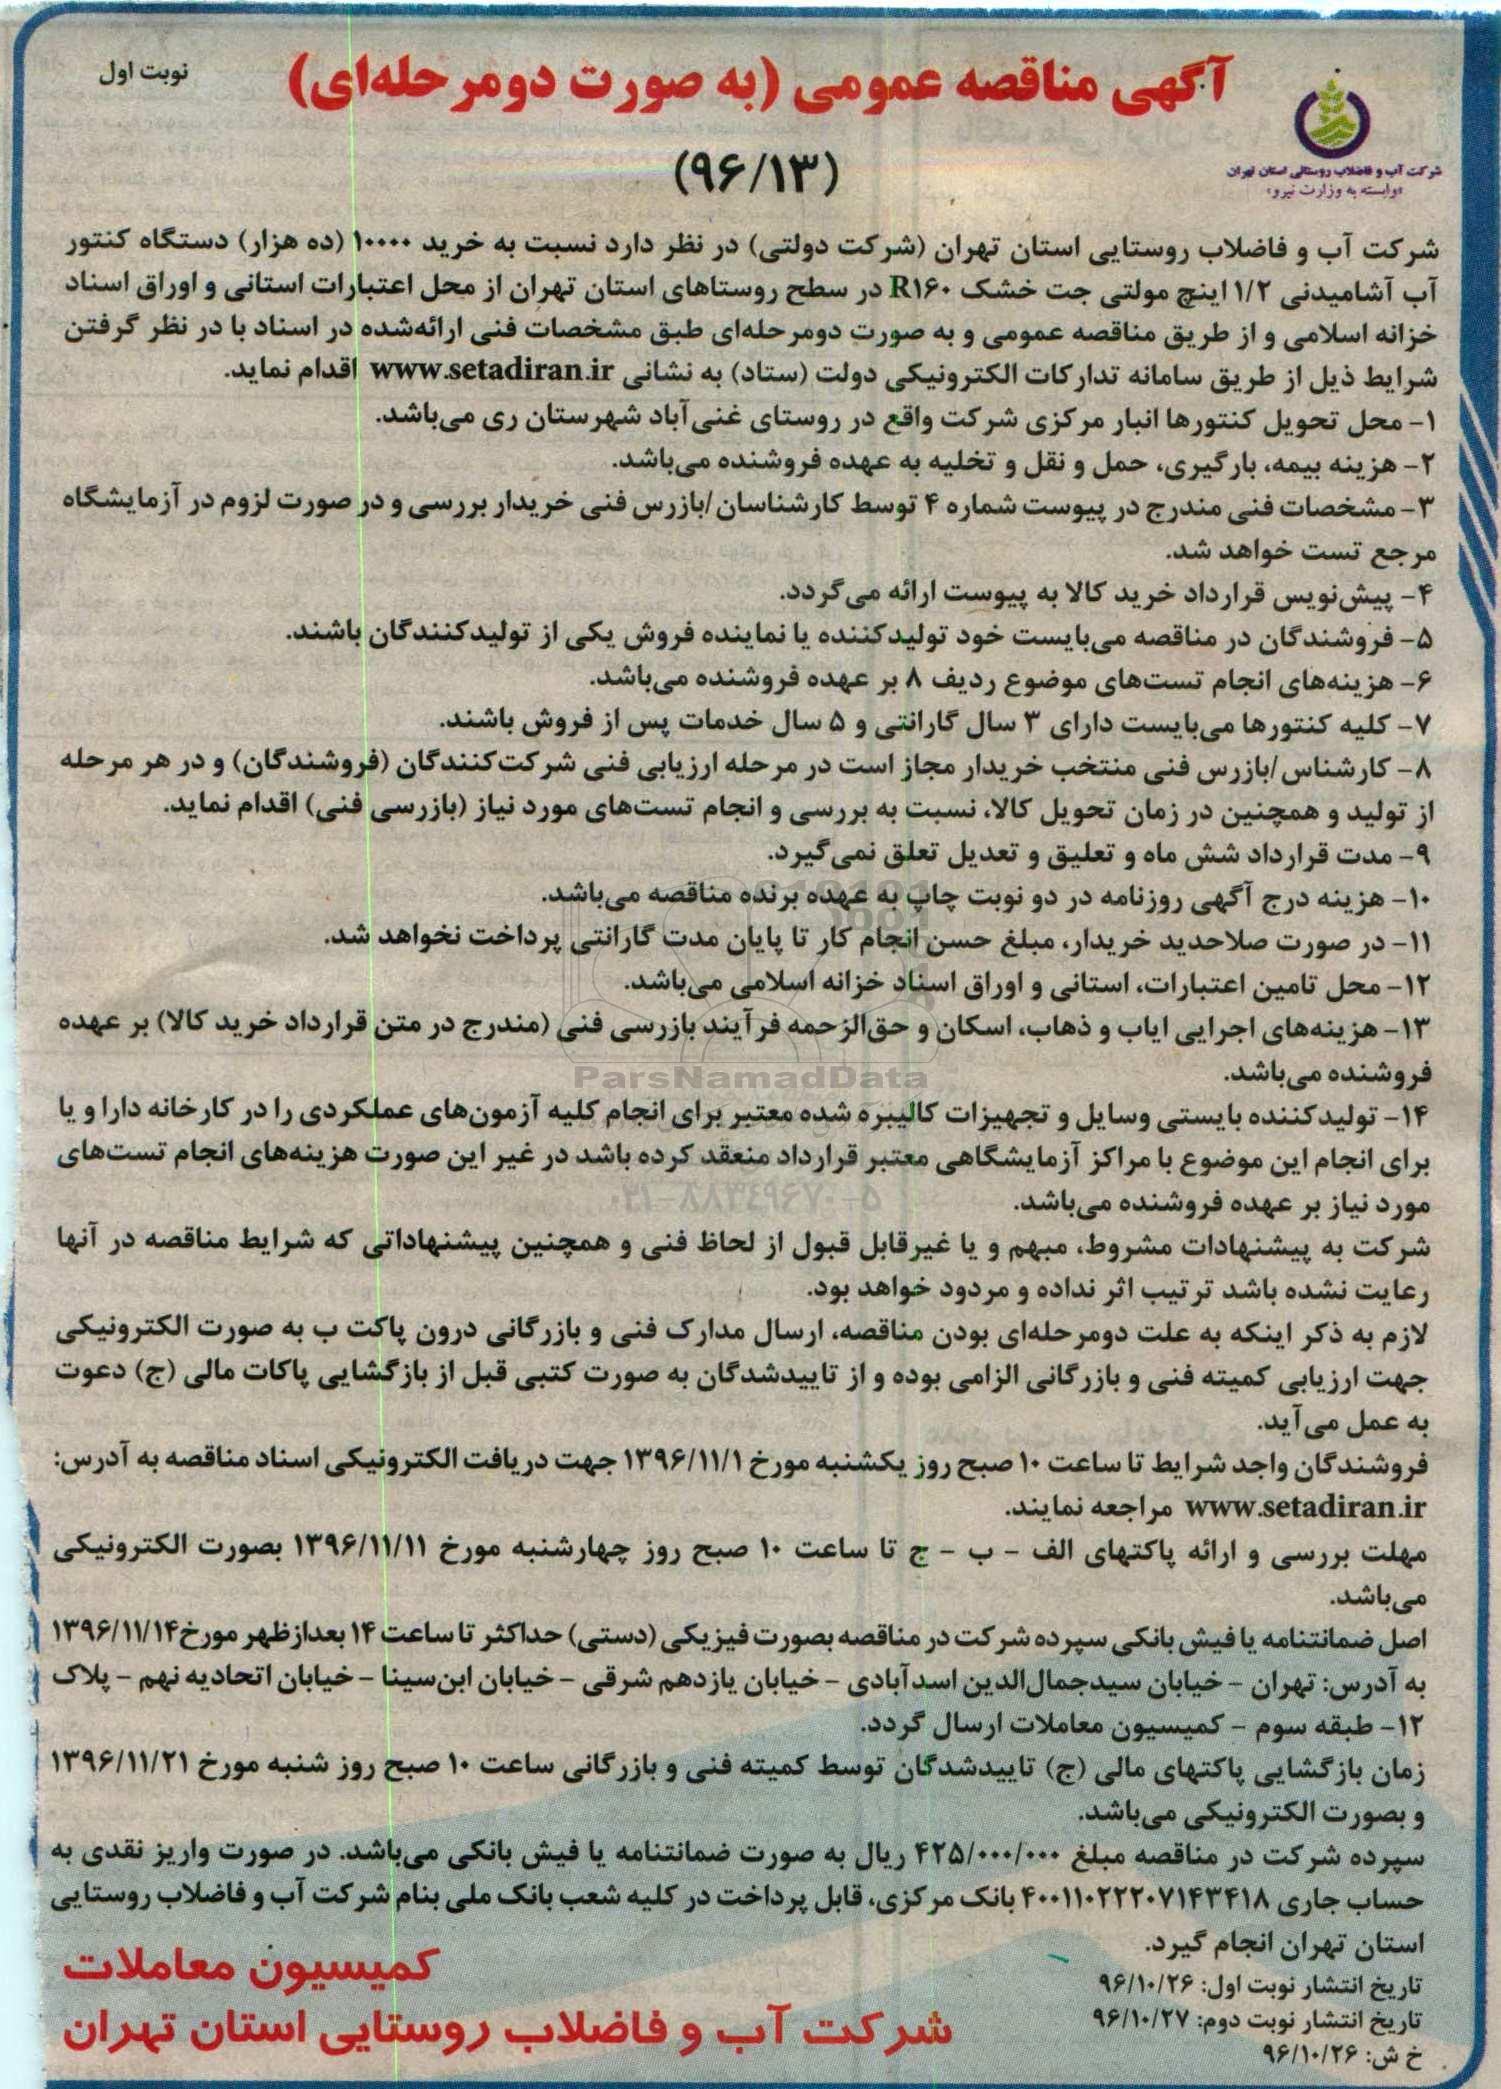 نوبت اول
آگهی مناقصه عمومی (به صورت دومرحله‌ای)
(۹۶/۱۳)
شرکت آب و فاضلاب روستایی استان تهران
«وابسته به وزارت نیرو»
شرکت آب و فاضلاب روستایی استان تهران (شرکت دولتی) در نظر دارد نسبت به خرید ۱۰۰۰۰ (ده هزار) دستگاه کنتور
آب آشامیدنی ۱/۲ اینچ مولتی جت خشک R۱۶۰ در سطح روستاهای استان تهران از محل اعتبارات استانی و اوراق اسناد
خزانه اسلامی و از طریق مناقصه عمومی و به صورت دومرحله‌ای طبق مشخصات فنی ارائه‌شده در اسناد با در نظر گرفتن
شرایط ذیل از طریق سامانه تدارکات الکترونیکی دولت (ستاد) به نشانی www.setadiran.ir اقدام نماید.
۱- محل تحویل کنتورها انبار مرکزی شرکت واقع در روستای غنی‌آباد شهرستان ری می‌باشد.
۲- هزینه بیمه، بارگیری، حمل و نقل و تخلیه به عهده فروشنده می‌باشد.
۳- مشخصات فنی مندرج در پیوست شماره ۴ توسط کارشناسان/بازرس فنی خریدار بررسی و در صورت لزوم در آزمایشگاه
مرجع تست خواهد شد.
۴- پیش‌نویس قرارداد خرید کالا به پیوست ارائه می‌گردد.
۵- فروشندگان در مناقصه می‌بایست خود تولیدکننده یا نماینده فروش یکی از تولیدکنندگان باشند.
۶- هزینه‌های انجام تست‌های موضوع ردیف ۸ بر عهده فروشنده می‌باشد.
۷- کلیه کنتورها می‌بایست دارای ۳ سال گارانتی و ۵ سال خدمات پس از فروش باشند.
۸- کارشناس/بازرس فنی منتخب خریدار مجاز است در مرحله ارزیابی فنی شرکت‌کنندگان (فروشندگان) و در هر مرحله
از تولید و همچنین در زمان تحویل کالا، نسبت به بررسی و انجام تست‌های مورد نیاز (بازرسی فنی) اقدام نماید.
۹- مدت قرارداد شش ماه و تعلیق و تعدیل تعلق نمی‌گیرد.
۱۰- هزینه درج آگهی روزنامه در دو نوبت چاپ به عهده برنده مناقصه می‌باشد.
۱۱- در صورت صلاحدید خریدار، مبلغ حسن انجام کار تا پایان مدت گارانتی پرداخت نخواهد شد.
۱۲- محل تامین اعتبارات، استانی و اوراق اسناد خزانه اسلامی می‌باشد.
۱۳- هزینه‌های اجرایی ایاب و ذهاب، اسکان و حق‌الزحمه فرآیند بازرسی فنی (مندرج در متن قرارداد خرید کالا) بر عهده
فروشنده می‌باشد.
ParsNamadData
۱۴- تولیدکننده بایستی وسایل و تجهیزات کالیبره شده معتبر برای انجام کلیه آزمون‌های عملکردی را در کارخانه دارا و یا
برای انجام این موضوع با مراکز آزمایشگاهی معتبر قرارداد منعقد کرده باشد در غیر این صورت هزینه‌های انجام تست‌های
مورد نیاز بر عهده فروشنده می‌باشد.
۰۲۱-۸۸۳۴۹۶۷۰-۵
شرکت به پیشنهادات مشروط، مبهم و یا غیرقابل قبول از لحاظ فنی و همچنین پیشنهاداتی که شرایط مناقصه در آنها
رعایت نشده باشد ترتیب اثر نداده و مردود خواهد بود.
لازم به ذکر اینکه به علت دومرحله‌ای بودن مناقصه، ارسال مدارک فنی و بازرگانی درون پاکت ب به صورت الکترونیکی
جهت ارزیابی کمیته فنی و بازرگانی الزامی بوده و از تاییدشدگان به صورت کتبی قبل از بازگشایی پاکات مالی (ج) دعوت
به عمل می‌آید.
فروشندگان واجد شرایط تا ساعت ۱۰ صبح روز یکشنبه مورخ ۱۳۹۶/۱۱/۱ جهت دریافت الکترونیکی اسناد مناقصه به آدرس:
www.setadiran.ir مراجعه نمایند.
مهلت بررسی و ارائه پاکتهای الف - ب - ج تا ساعت ۱۰ صبح روز چهارشنبه مورخ ۱۳۹۶/۱۱/۱۱ بصورت الکترونیکی
می‌باشد.
اصل ضمانتنامه یا فیش بانکی سپرده شرکت در مناقصه بصورت فیزیکی (دستی) حداکثر تا ساعت ۱۴ بعدازظهر مورخ ۱۳۹۶/۱۱/۱۴
به آدرس: تهران - خیابان سیدجمال‌الدین اسدآبادی - خیابان یازدهم شرقی - خیابان ابن‌سینا - خیابان اتحادیه نهم - پلاک
۱۲- طبقه سوم - کمیسیون معاملات ارسال گردد.
زمان بازگشایی پاکتهای مالی (ج) تاییدشدگان توسط کمیته فنی و بازرگانی ساعت ۱۰ صبح روز شنبه مورخ ۱۳۹۶/۱۱/۲۱
و بصورت الکترونیکی می‌باشد.
سپرده شرکت در مناقصه مبلغ ۴۲۵/۰۰۰/۰۰۰ ریال به صورت ضمانتنامه یا فیش بانکی می‌باشد. در صورت واریز نقدی به
حساب جاری ۴۰۰۱۱۰۲۲۲۰۷۱۴۳۴۱۸ بانک مرکزی، قابل پرداخت در کلیه شعب بانک ملی بنام شرکت آب و فاضلاب روستایی
استان تهران انجام گیرد.
تاریخ انتشار نوبت اول: ۹۶/۱۰/۲۶
تاریخ انتشار نوبت دوم: ۹۶/۱۰/۲۷
خ ش: ۹۶/۱۰/۲۶
کمیسیون معاملات
شرکت آب و فاضلاب روستایی استان تهران